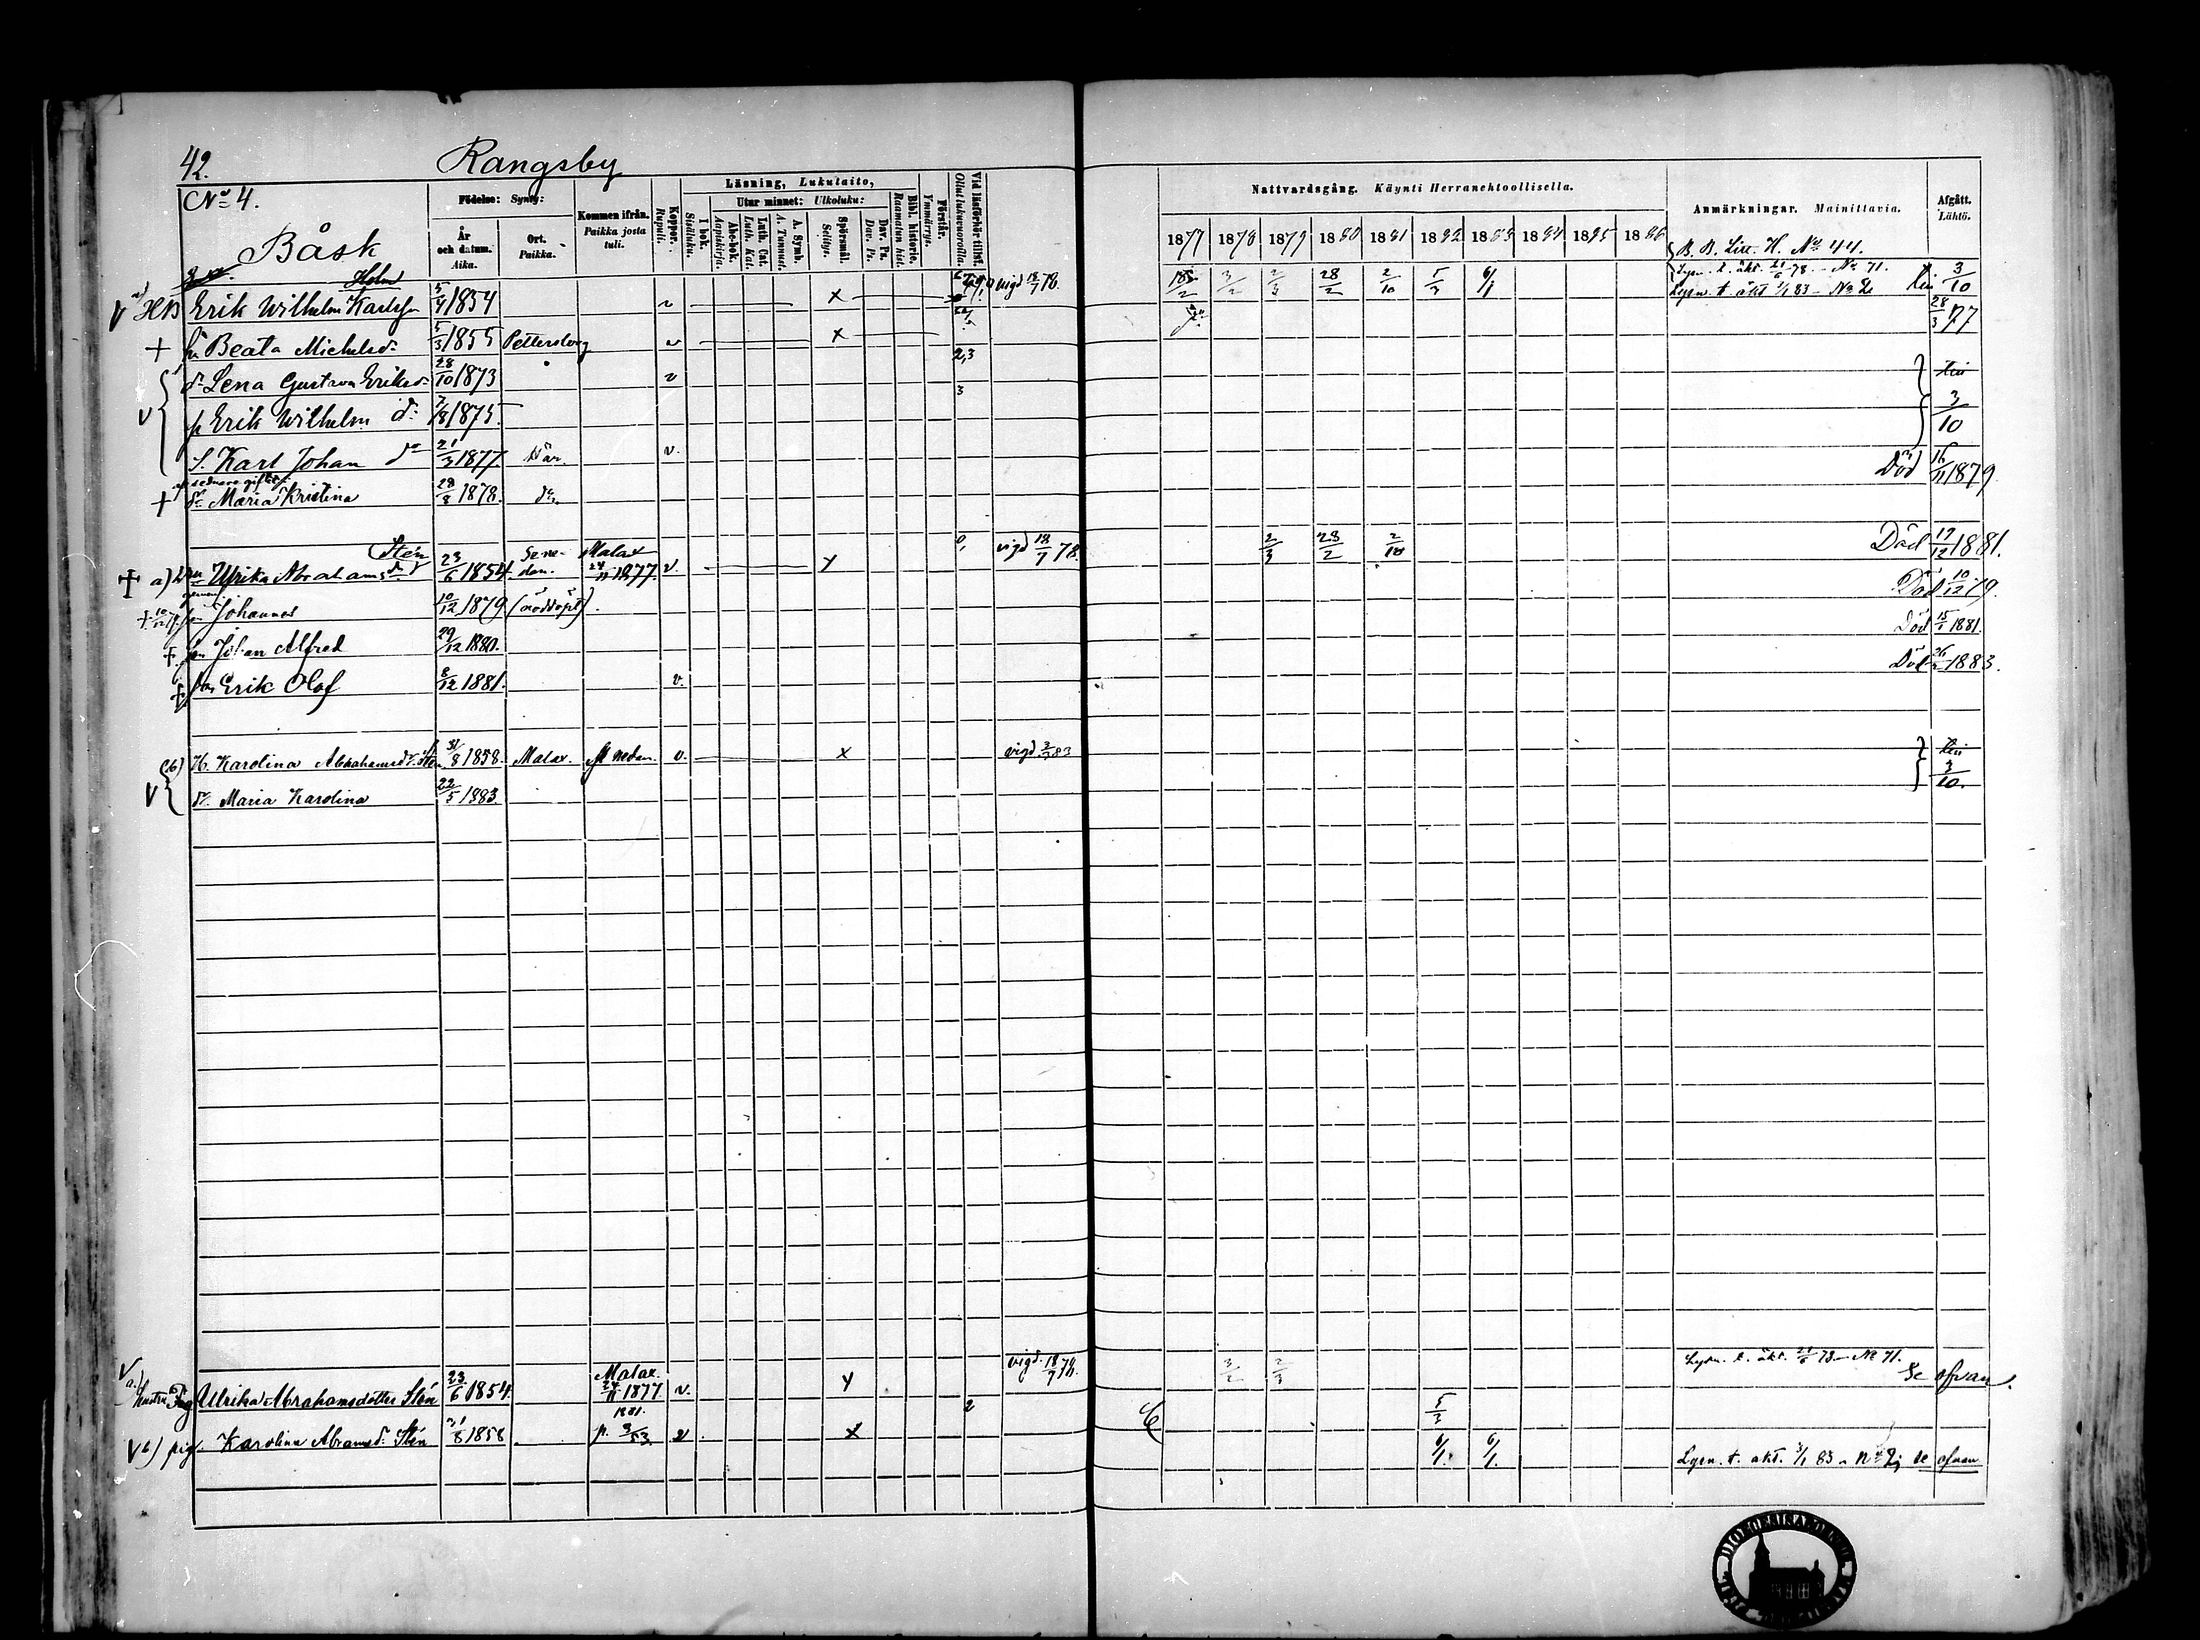 42. Rangsby
No 4. Båsk
Födelse: Synty:
År och datum. Aika.
Ort. Paikka.
Kommen ifrån. Paikka josta tuli.
Koppor. Rupuli.
Läsning, Lukutaito,
I bok. Sisäluku.
Utur minnet: Ulkoluku:
Abc-bok. Aapiskirja.
Luth. Cat. Luth. Kat.
A. Symb. A. Tunnust.
Spörsmål. Selitys.
Dav. Ps. Dav. Ps.
Bibl. historie. Raamatun hist.
Förstår. Ymmärrys.
Vid läsförhör tillst. Ollut lukuvuoroilla.
Nattvardsgång. Käynti Herranehtoollisella.
1877 1878 1879 1880 1881 1882 1883 1884 1885 1886
Anmärkningar. Mainittavia.
Afgått. Lähtö.
B. B. Litt. H. No 44.
Holm
Erik Wilhelm Karlss. 5/4 1854 v x vigd 18/7 78. 3/2 2/3 28/2 2/10 5/3 6/1 Lysn. t. äkt. 21/6 78 - No 71. 3/10
Lysn. t. äkt 1/1 83 - No 2
+ hu Beata Michelsdr 5/3 1855 Pettersborg v x 28/3 77
dr Lena Gustava Eriksdr 28/10 1873 v 2,3
p Erik Wilhelm do 7/8 1875 3 3/10
s. Karl Johan do 21/3 1877. När. v.
af sednare giftet
+ dr Maria Kristina 28/8 1878. do Död 16/11 1879.
Sten
+ a) Ulrika Abrahamsdr 23/6 1854. Malax 24/11 1877. v. y vigd 18/7 78. 2/3 28/2 2/10 Död 17/12 1881.
+ 10/12 79. Johannes 10/12 1879 (nöddöpt). Död 10/12 79.
+ son Johan Alfred 29/12 1880. Död 15/1 1881.
+ son Erik Olof 8/12 1881. v. Död 26/ 1883.
(b) H. Karolina Abrahamsdr Sten 31/8 1858. Malax. fr nedan. v. x vigd 2/ 83
dr. Maria Karolina 22/5 1883. 3/10.
a.) hustru Ulrika Abrahamsdotter Sten 23/6 1854. Malax. 24/11 1877 v. y vigd. 18/7 78. 3/2 2/3 Lysn. t. äkt. 21/6 78 - No 71. Se ofvan.
b) pig. Karolina Abramsdr Sten 31/8 1858 1881. p. 9/53. v x 2 5/3 6/1. 6/1. Lysn. t. äkt. 1/1 83 - No 2; se ofvan